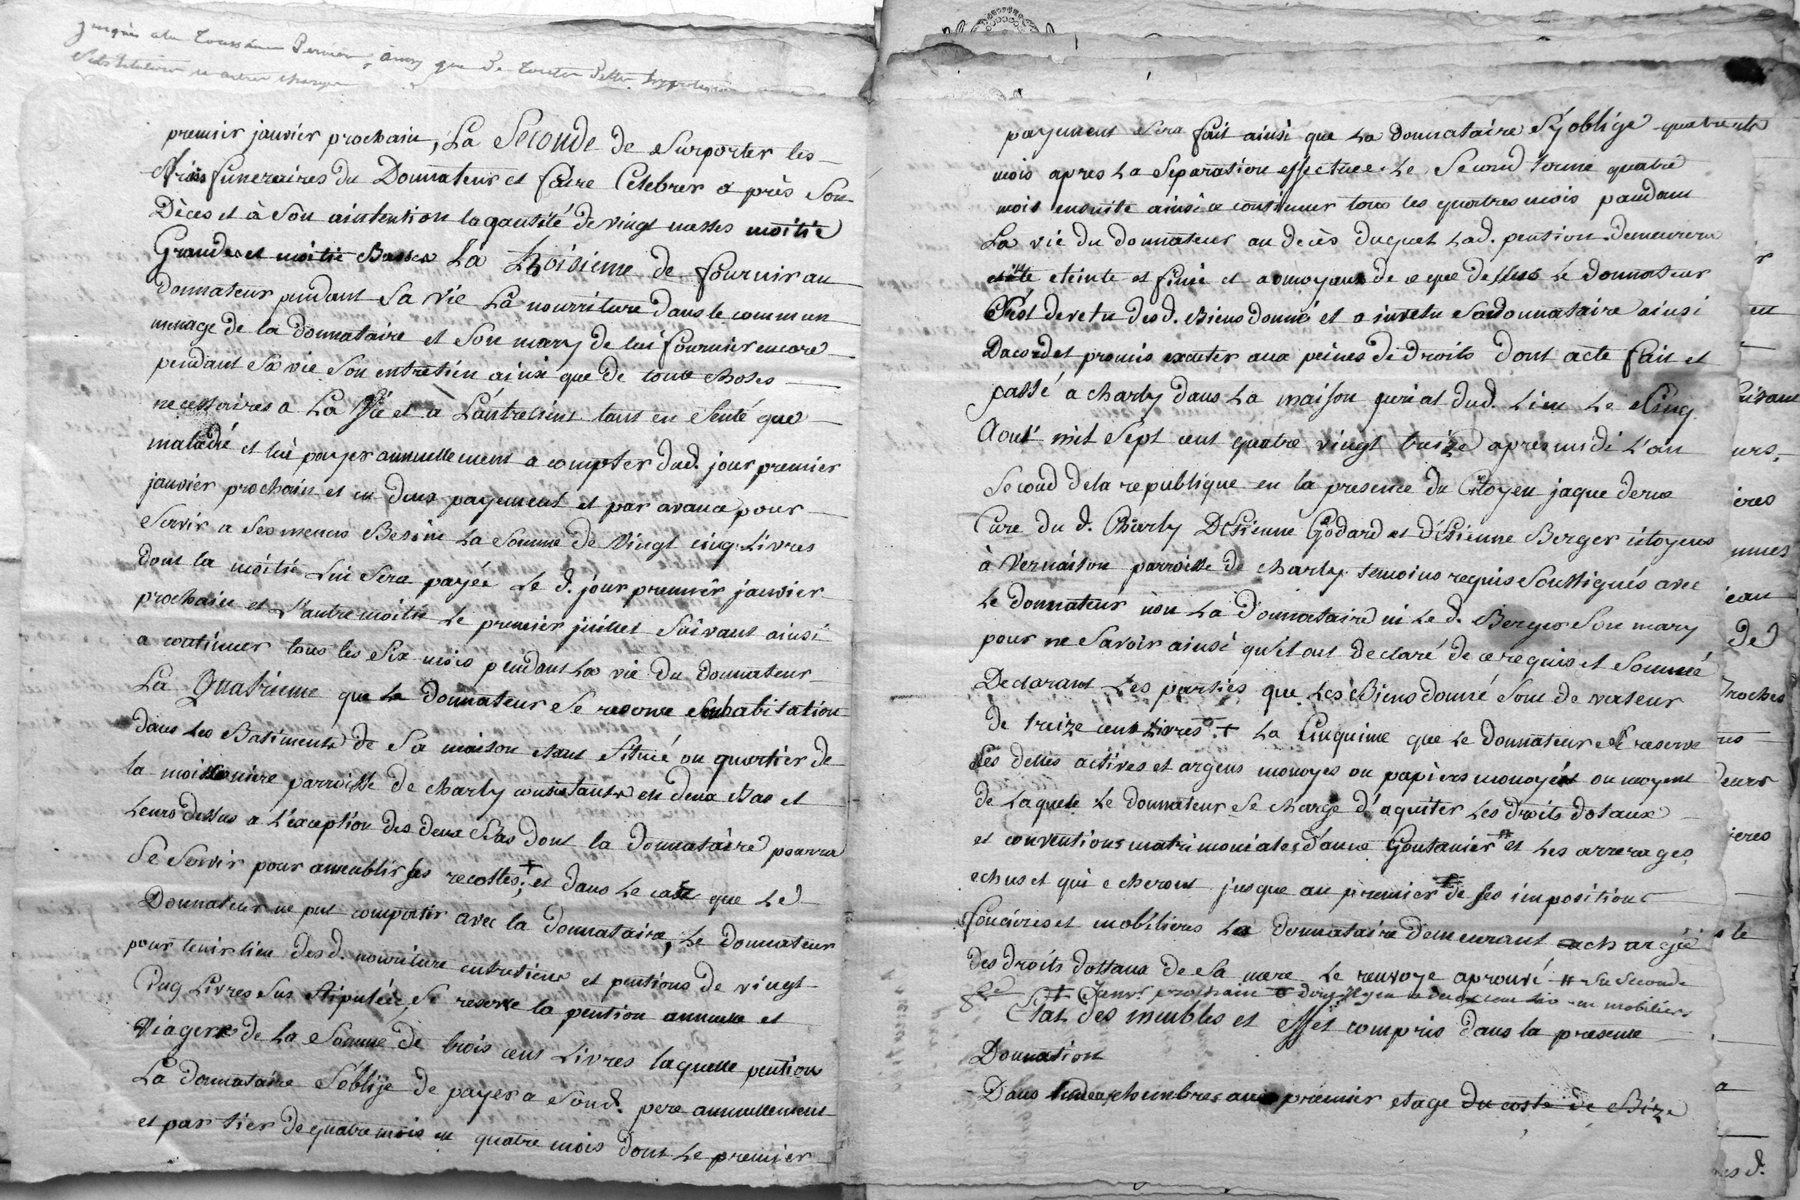 jusques a la Toussaint Dernier, ainsy que de toutes dettes hypoteques
et autres charges
premier janvier prochain, La Seconde de Surporter les
frais funeraires du Donnateur et faire Celebrer a près Son
Dèces et à Son aintention la qantité de vingt messes moitié
Grandes et moitié Basses La Troisieme de fournir au
donnateur pendant Sa vie La nourriture dans le commun
menage de la donnataire et Son mary de lui fournir encore
pendant Sa vie Son entretien ainsi que de toute choses
necessaires a La Vie et a Lantretient tant en Senté que
maladie et lui payer annuellement a compter dud. jour premier
janvier prochain et en deux payement et par avance pour
Servir a Ses menus Besoin La Somme de Vingt cinq Livres
dont la moitié Lui Sera payée Le d. jour premier janvier
prochain et L'autre moitié Le premier juillet Suivant ainsi
a continuer tous les Six mois pendant La vie du donnateur
La Quatrieme que Le donnateur Se reserve Son habitation
dans Les Batiments de Sa maison étant Situé au quartier de
la moissonniere parroisse de charly consistants en deux Bas et
Leurs dessus a L'exception des deux Bas dont la donnataire pourra
Se Servir pour ameublir ses recoltes, + et dans Le cas que Le
Donnateur ne put comportir avec la donnataire, Le donnateur
pour tenir lieu des d. nourriture entretiens et pentions de vingt
Cinq Livres Sus Stipulée, Se reserve la pention annuelle et
Viagere de La Somme de trois cent Livres laquelle pention
La donnataire S'oblije de payer a Son d. pere annuellement
et par tier de quatre mois en quatre mois dont Le premier
payement Sera fait ainsi que La donnataire S'y oblige quatre
mois apres La Separation effectuée. Le Second terme quatre
mois ensuite ainsi a continuer tous les quatres mois pandant
La vie du donnateur au decès duquel Lad. pention demeurera
eteinte et finie et a moyens de ce que dessus Le donnateur
C'est devetu des d. Biens donné et a invetu Sa donnataire ainsi
Dacord et promis executer aux peines de droits dont acte fait et
passé a charly dans La maison curial dud. Lieu Le Cinq
Aout mil Sept cent quatre vingt treize apres midi L'an
Second de la republique en la presence du Citoyen jaque derue
Cure du d. Charly D'Etienne Godard et d'Etienne Berger citoyens
à Vernaison parroisse de charly temoins requis Soussignés avec
Le donnateur non La donnataire ni Le d. Berger Son mary
pour ne Savoir ainsi qu'il ont declaré de ce requis et Sommé
Declarant Les parties que Les Biens donné Sont de valeur
de treize cent Livres + La Cinquime que Le donnateur Se reserve
Ses dettes actives et argens monoyes ou papiers monoyés au moyens
de laquele Le donnateur Se charge d'aquiter Les droits dotaux
et conventions matrimoniales d'anne Goutanier # et Les arrerages
echus et qui echeront jusque au premier de Ses impositions
foncieres et mobilieres La donnataire demeurant chargée
des droits dottaux de Sa mere Le renvoye aprouvé # Sa Seconde
+ Janv. prochain
Etat des meubles et effet compris dans la presente
Donnation
Dans chambres au premier etage du costé de Bize